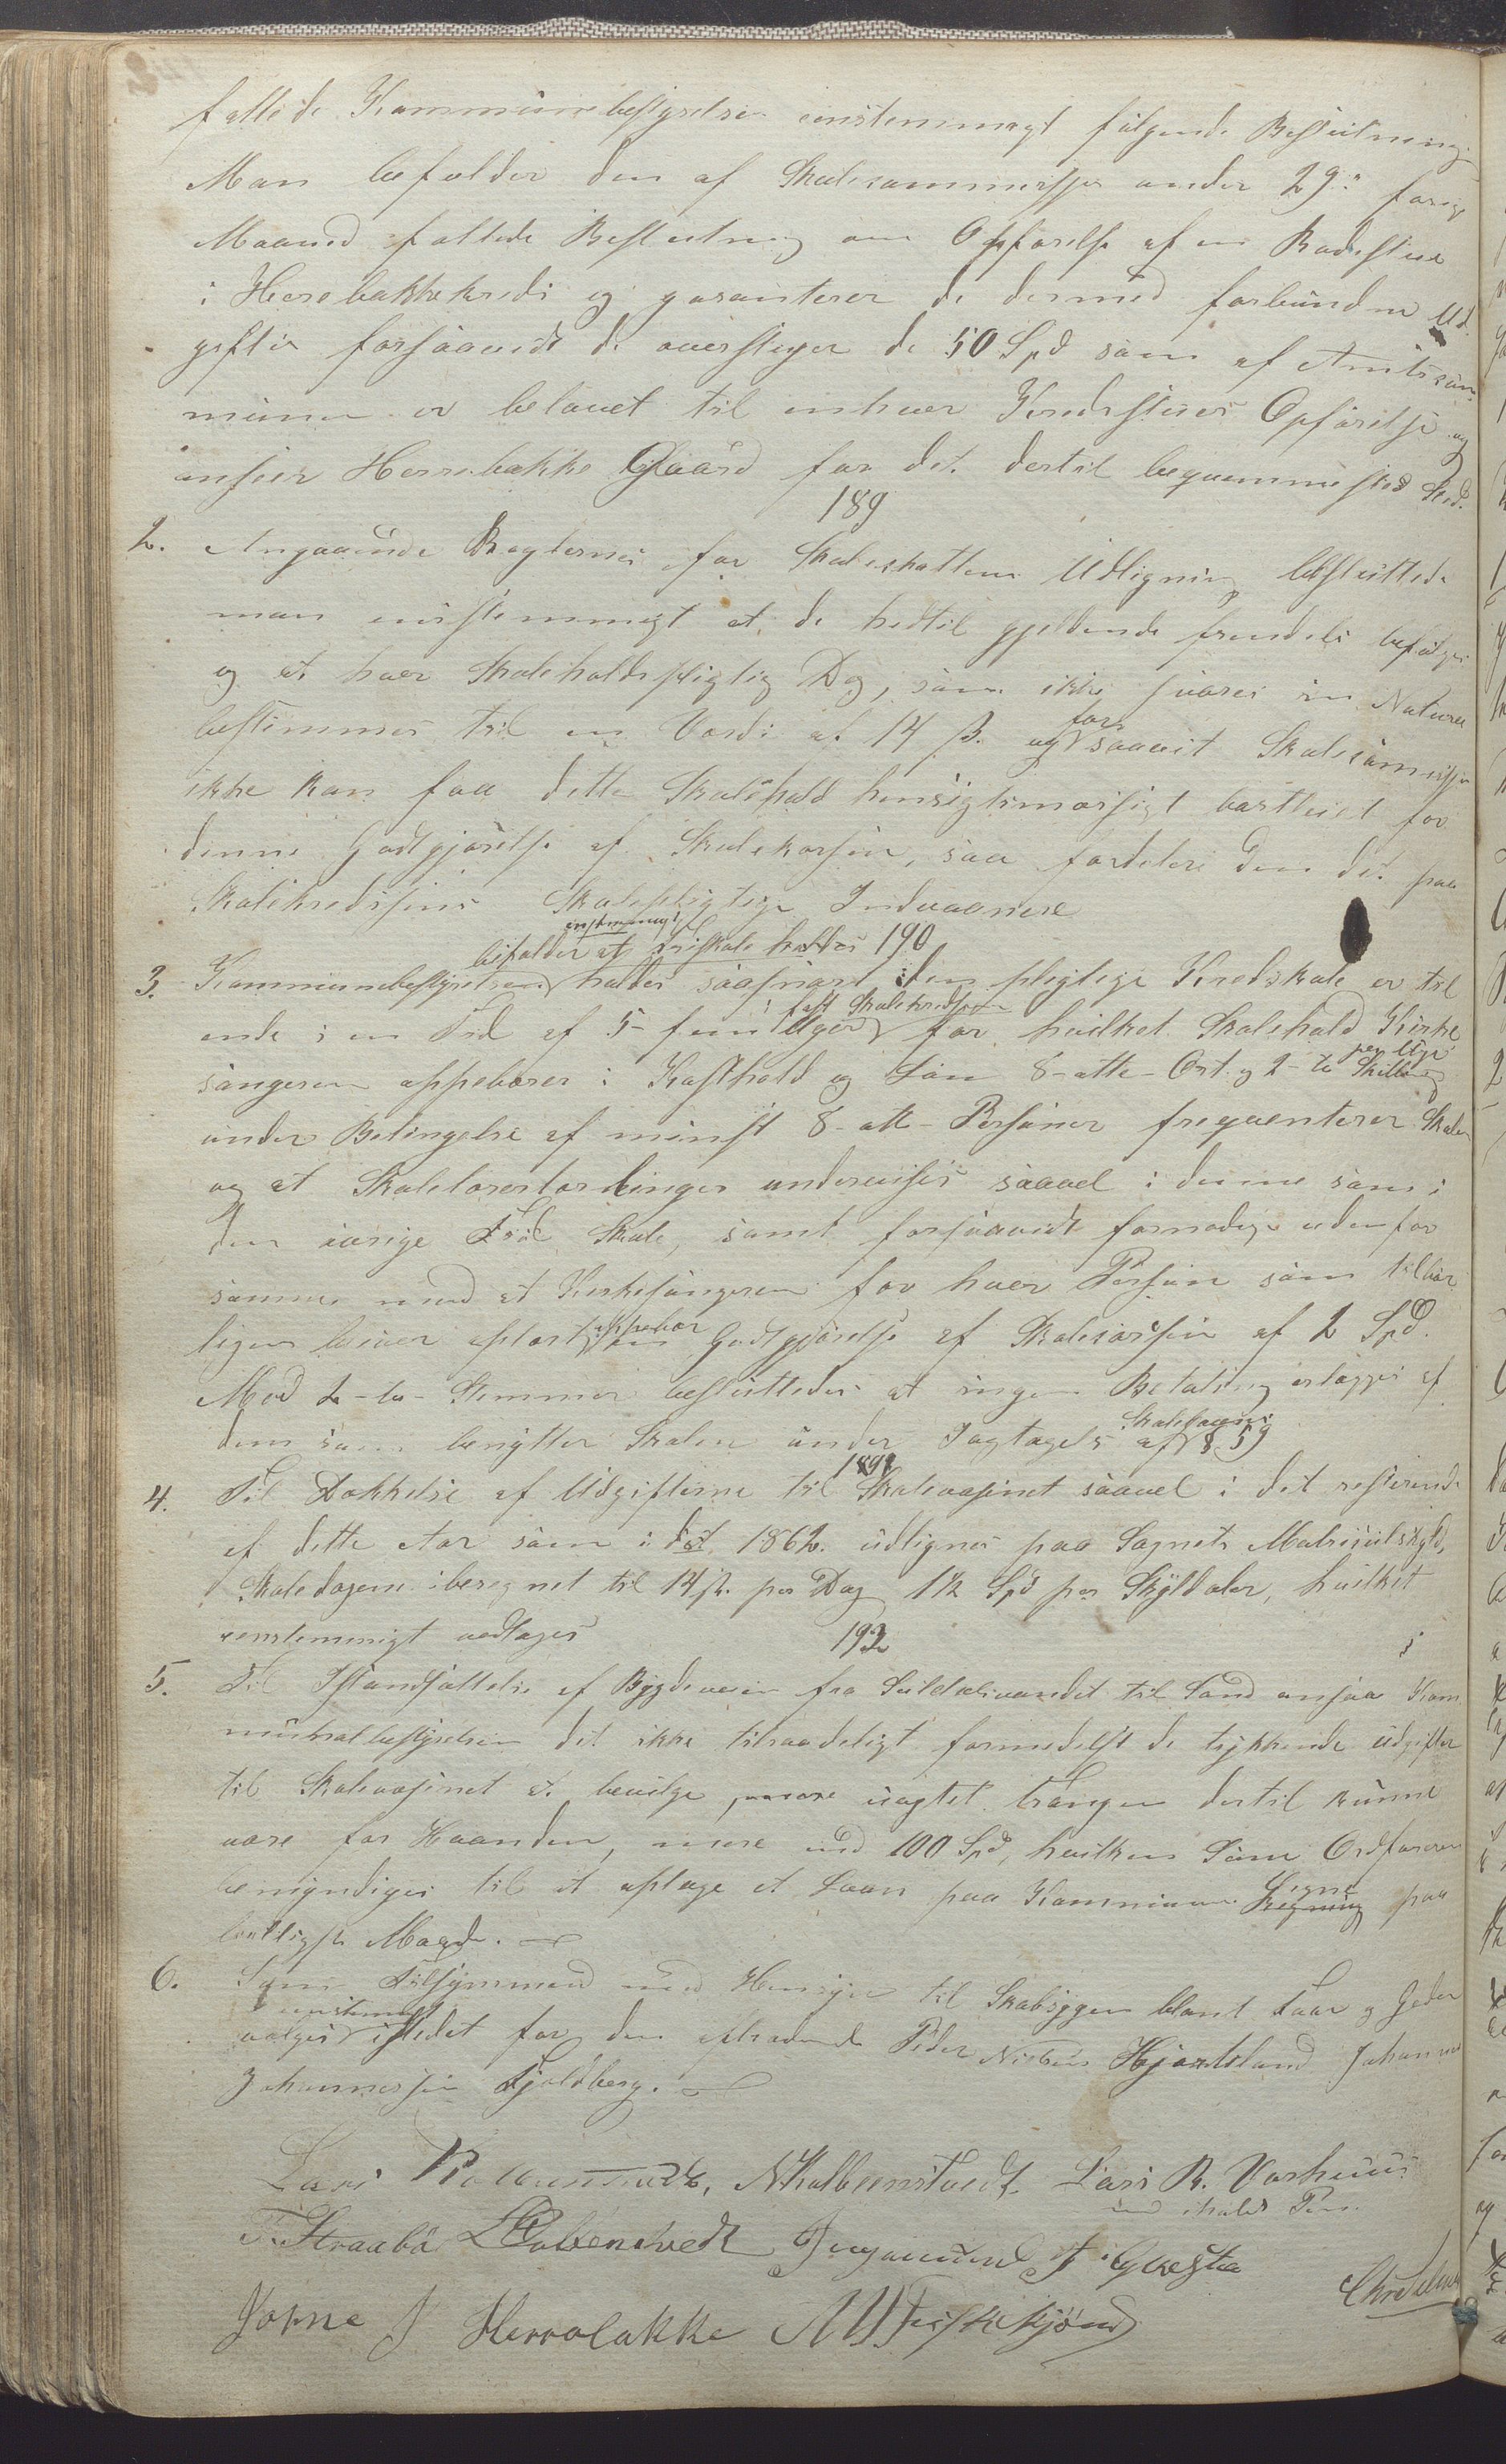 fattede Kommunebestyrelsen eenstemmigt følgende Beslutning
Man befalder den af Skolecommissjon under 29de forrige
Maaned fattede Beslutning om Opførelse af en Rodestue
i Herrebakkekreds og garanterer de dermed forbundne Ud-
gifter forsaavidt de overstiger de 50 Spd som af Amtscom-
munen er lovet til enhver Kredsstues Opførelse og
anseer Herrebakke Gaard for det dertil beqvemmeste Sted.
189
2. Angaaende Reglerne for Skoleskattens Udligning besluttede
man eenstemmigt at de hidtil gjeldende fremdeles befølges
og at hver Skoleholdspligtig Dag, som ikke svares in Natura
bestemmes til en Værdi af 14 ß. og forsaavit Skolecommissjon
ikke kan faa dette Skolehold hensigtsmæssigt bortleiet for
denne Godtgjørelse af Skolekassen, saa fordeler den det paa
Skolekredsens Skolepligtige Indvaanere
190
eenstemmigt
bifalder at friskole holdes
3. Kommunebestyrelsen holdes saasnart den pligtige Kredsskole er til
ende i en Tid af 5 - fem Uger i fast Skolekredsen for hvilket Skolehold Kirke
sangeren oppebærer i Kosthold og Løn 8 - otte - Ort og 2 - to Skilling per Uge
under Betingelse af minst 8 - otte - Personer freqventerer Skolen
og at Skolelærerlærlinger undervises saavel i denne som i
den øvrige Tids Skole, samt forsaavidt fornødige udenfor
samme med at Kirkesangeren for hver Person som tilbør
ligen bliver oplært oppebær en Godtgjørelse af Skolecassen af 2 Spd.
Med 2 - to - Stemmer besluttedes at ingen Betaling erlægges af
dem som benytter Skolen under Iagtagelse af Skolelovens § 59
191
4. Til Dækkelse af Udgifterne til Skolevæsenet saavel i det resterende
af dette Aar som i det 1862. udlignes paa Sognets Matriculskyld,
Skoledagene iberegnet til 14 ß. per Dag 1½ Spd per Skylddaler, hvilket
eenstemmigt vedtages
192
5. Til Istandsættelse af Bygdeveien fra Suldalsvandet til Sand ansaa Kom
munalbestyrelsen det ikke tilraadeligt formedelst de trykkende Udgifter
til Skolevæsenet at bevilge uagtet Trangen dertil kunne
være for Haanden, mere end 100 Spd, hvilken Sum Ordføreren
bemyndiges til at optage et Laan paa Kommunens Vegne paa
lovligste Maade.
6. Som Tilsynsmand med Hensyn til Skabsygen blant Faar og Geder
valges eenstemmigt istedet for den aftrædende Peder Nielsen Hjorteland Johannes
Johannessen Fjeldberg.
Lars N Kolbenstvedt. Lars R. Vårhuus
med iholdt Pen.
T. Straabø L Kolbenstvedt Ingemund J
Jorne J Herrabakke